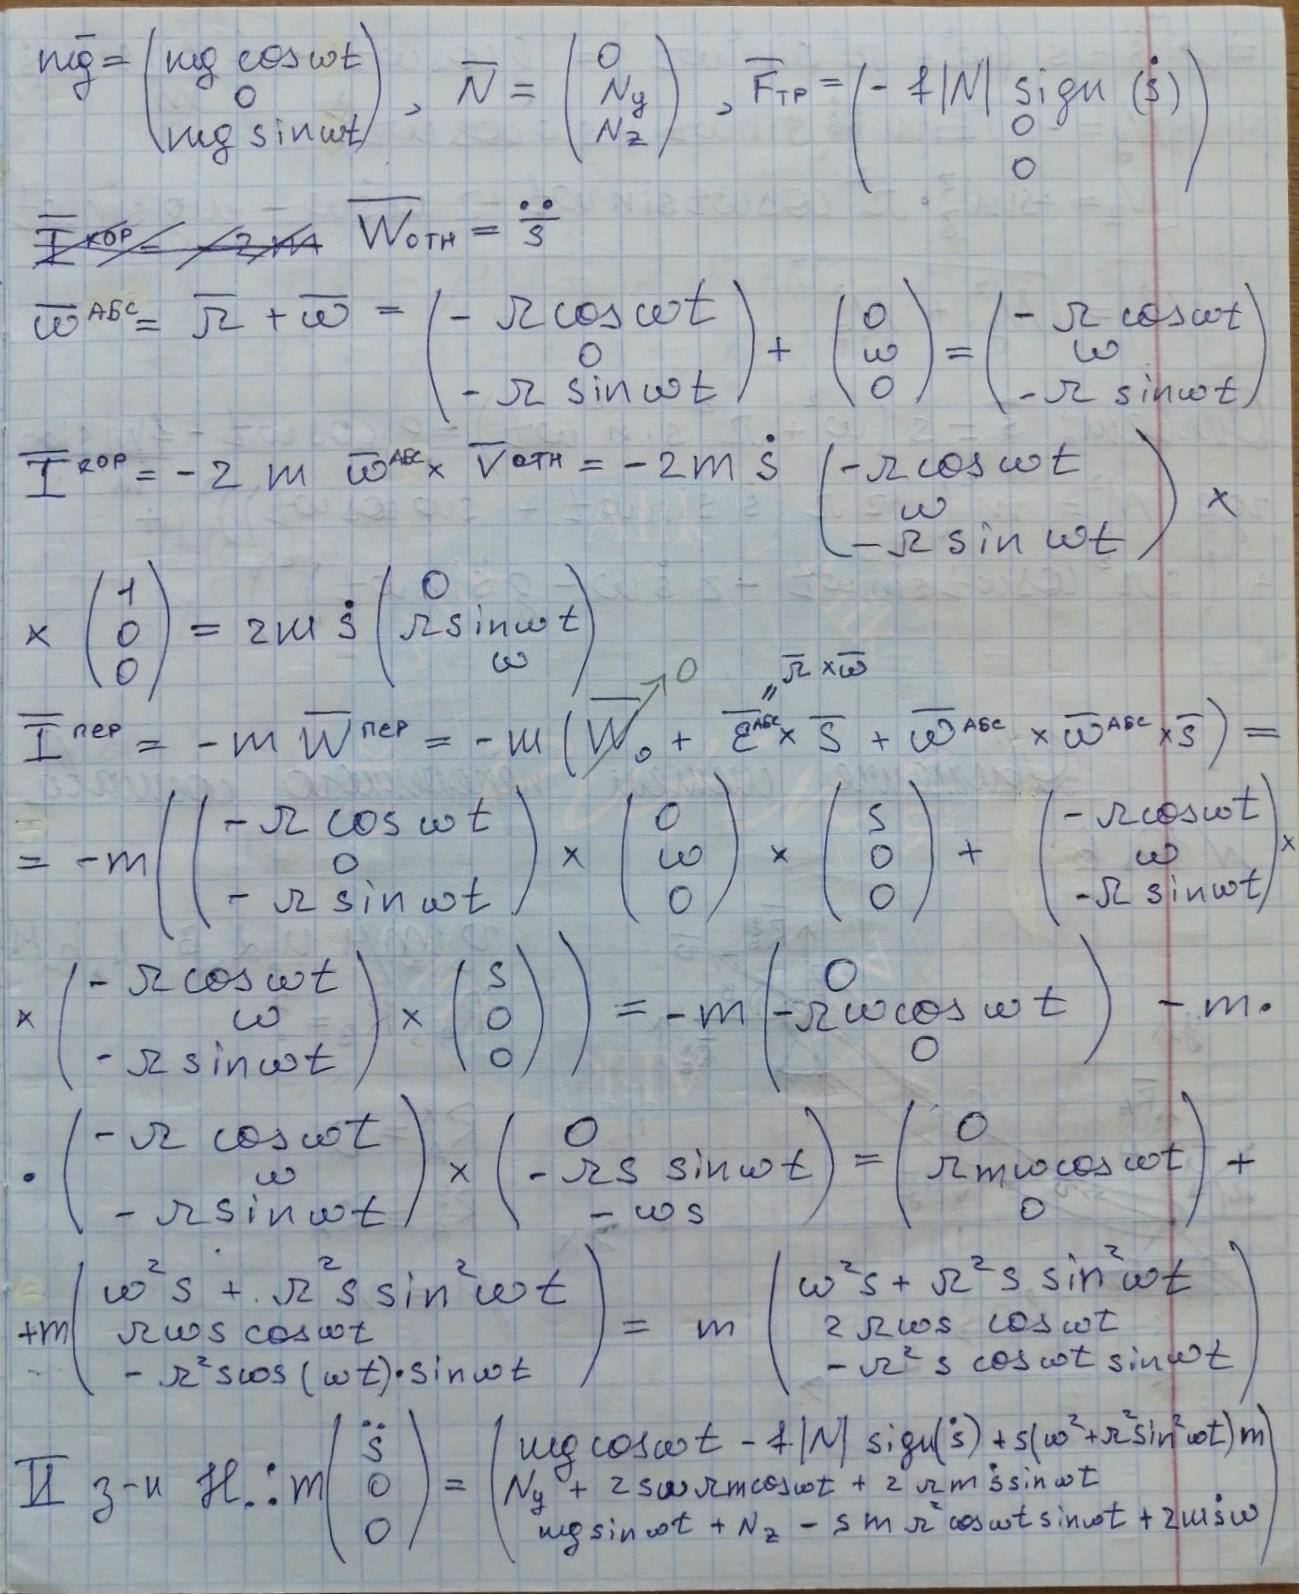 mg̅ = (mg cos ωt; 0; mg sin ωt), N̅ = (0; Ny; Nz), F̅тр = (- f|N| sign (ṡ); 0; 0)
I̅ кор = - 2 m W̅отн = s̈
ω̅ АБС = Ω̅ + ω̅ = (- Ω cos ωt; 0; - Ω sin ωt) + (0; ω; 0) = (- Ω cos ωt; ω; - Ω sin ωt)
I̅ кор = - 2 m ω̅ АБС × V̅ отн = - 2m ṡ (- Ω cos ωt; ω; - Ω sin ωt) ×
× (1; 0; 0) = 2m ṡ (0; Ω sin ωt; ω)
0 " Ω̅ × ω̅
I̅ пер = - m W̅ пер = - m (W̅₀ + ε̅ АБС × s̅ + ω̅ АБС × ω̅ АБС × s̅) =
= - m ((- Ω cos ωt; 0; - Ω sin ωt) × (0; ω; 0) × (s; 0; 0) + (- Ω cos ωt; ω; - Ω sin ωt) ×
× (- Ω cos ωt; ω; - Ω sin ωt) × (s; 0; 0)) = - m (0; - Ω ω cos ωt; 0) - m ·
· (- Ω cos ωt; ω; - Ω sin ωt) × (0; - Ω s sin ωt; - ωs) = (0; Ω m ω cos ωt; 0) +
+ m (ω²s + Ω²s sin²ωt; Ωωs cos ωt; - Ω²s cos (ωt) · sin ωt) = m (ω²s + Ω²s sin²ωt; 2 Ωωs cos ωt; - Ω² s cos ωt sin ωt)
II з-н Н.: m (s̈; 0; 0) = (mg cos ωt - f|N| sign(ṡ) + s(ω² + Ω² sin²ωt) m; Ny + 2 sω Ωm cos ωt + 2 Ωm ṡ sin ωt; mg sin ωt + Nz - s m Ω² cos ωt sin ωt + 2mṡω)